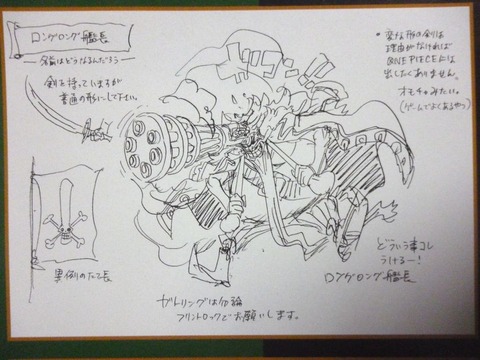 ロングロング艦長
―名前はどうなるんだろう―
剣を持っていますが
普通の形にして下さい。
異例のたて長
ドドン
• 変な形の剣は
理由がなければ
ONE PIECEには
出したくありません。
オモチャみたい。
(ゲームでよくあるやつ)
どういう事コレ
うけるー!
ロングロング艦長
ガトリングは勿論
フリントロックでお願いします。